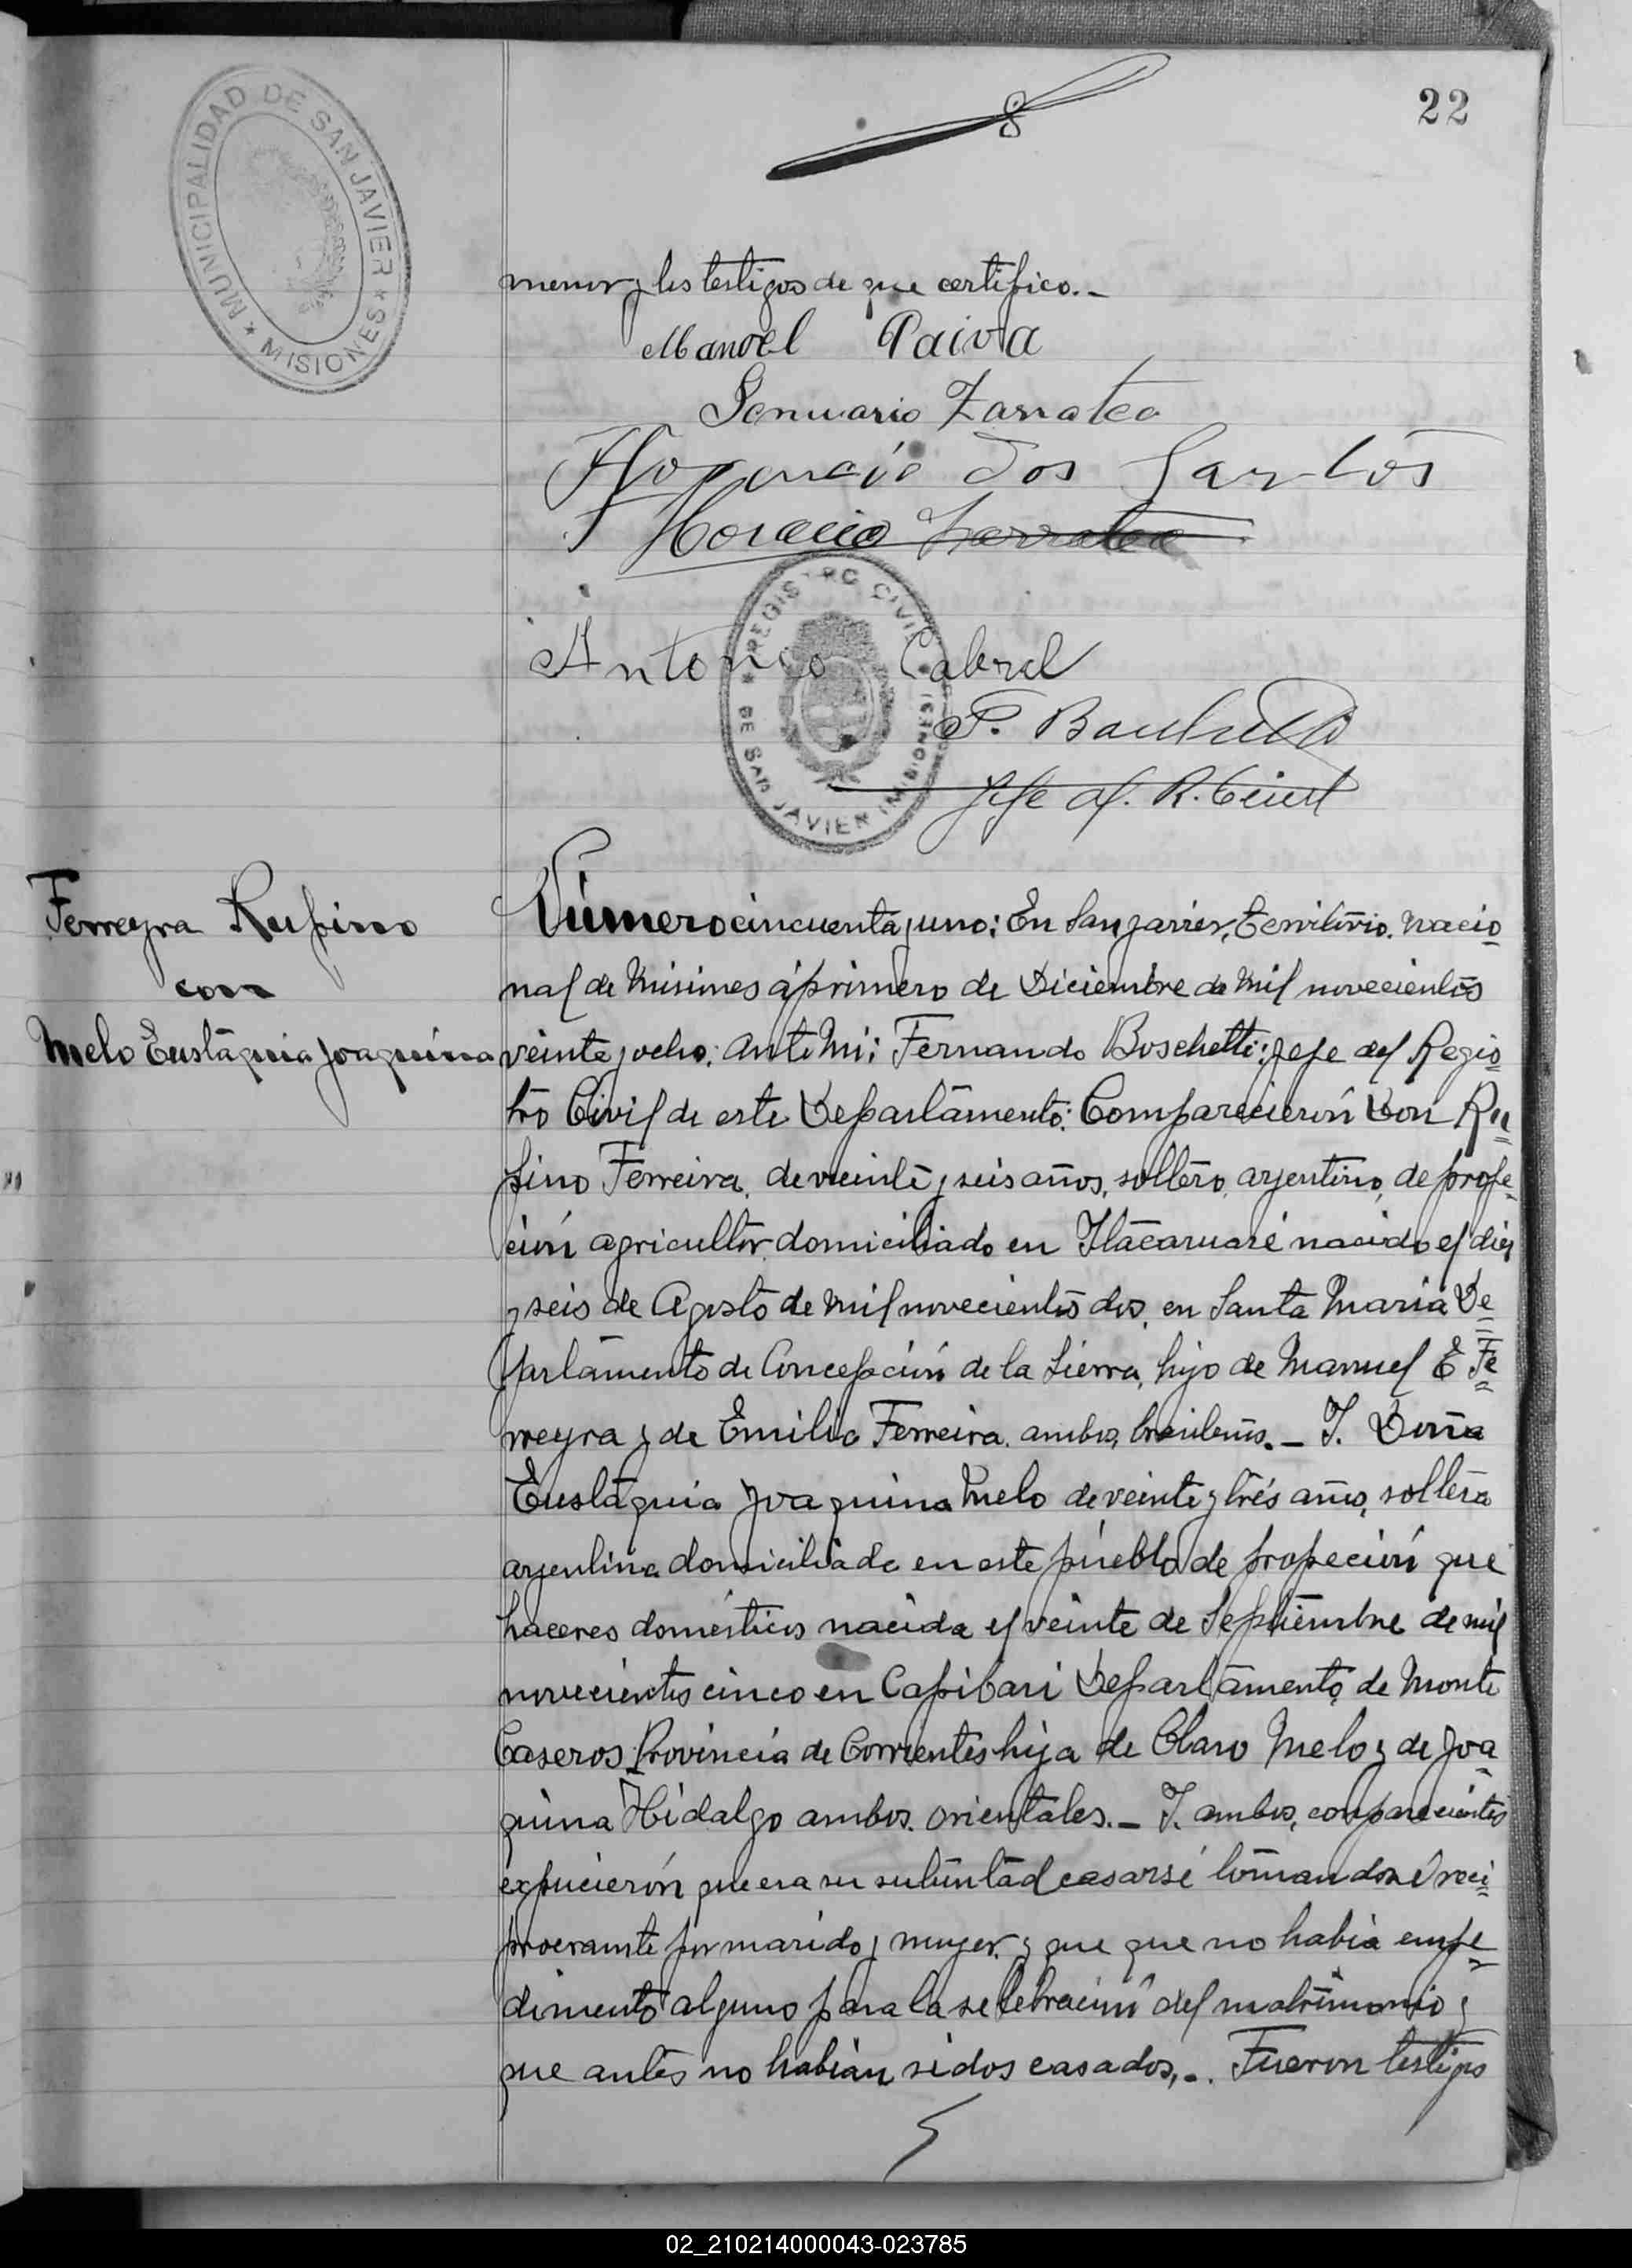 22
MUNICIPALIDAD DE SAN JAVIER
* MISIONES *
menor y los testigos de que certifico.-
Manoel Paiva
Jenuario Zarratea
dos Santos
Horacio Larratea
Antonio Cabrel
* REGISTRO CIVIL *
DE SAN JAVIER (MISIONES)
F. Boschetti
Jefe del R. Civil
Ferreyra Rufino
con
Melo Eustaquia Joaquina
Número cincuenta y uno: En San Javier, Territorio Nacio
nal de Misiones á primero de Diciembre de Mil novecientos
veinte y ocho: Ante Mi: Fernando Boschetti: Jefe del Regis
tro Civil de este Departamento: Comparecierón Don Ru
fino Ferreira, de veinte y seis años, soltero, argentino, de profe
ción agricultor domiciliado en Itacaruaré nacido el diez
y seis de Agosto de Mil novecientos dos, en Santa Maria De
partamento de Concepción de la Sierra, hijo de Manuel E Fe
rreyra y de Emilia Ferreira, ambos, brasileños.- I. Doña
Eustaquia Joaquina Melo de veinte y trés años, soltera
argentina domiciliada en este pueblo de profeción que
haceres domésticos nacida el veinte de Septiembre de mil
novecientos cinco en Capibari Departamento de Monte
Caseros Provincia de Corrientes hija de Claro Melo y de Joa
quina Hidalgo ambos orientales.- I. ambos, comparecientes
expucierón que era su voluntad casarsé tomandose reci
procramte por marido y mujer, y que que no habia empe
dimento alguno para la selebración del matrimonio y
que antes no habian sidos casados,-. Fueron testigos
02_210214000043-023785